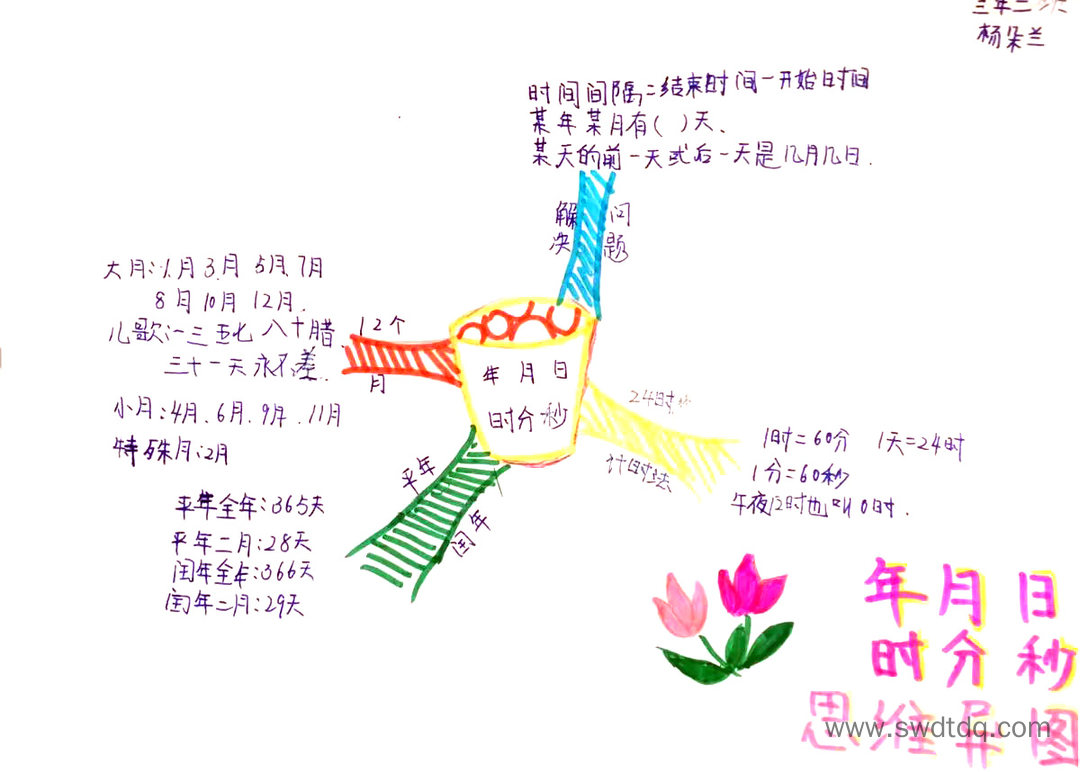 三年二班
杨朵兰
时间间隔=结束时间-开始时间
某年某月有( )天、
某天的前一天或后一天是几月几日.
解 问
决 题
大月:1.月 3.月 5月、7月
8月 10月 12月.
儿歌:一三五七八十腊、
三十一天永不差.
12个
月
小月:4月、6月、9月、11月
特殊月:2月
年 月 日
时 分 秒
24时
计时法
1时=60分 1天=24时
1分=60秒
午夜12时也叫0时.
平年
闰年
平年全年:365天
平年二月:28天
闰年全年:366天
闰年二月:29天
年月日
时分秒
思维导图
www.swdtdq.com